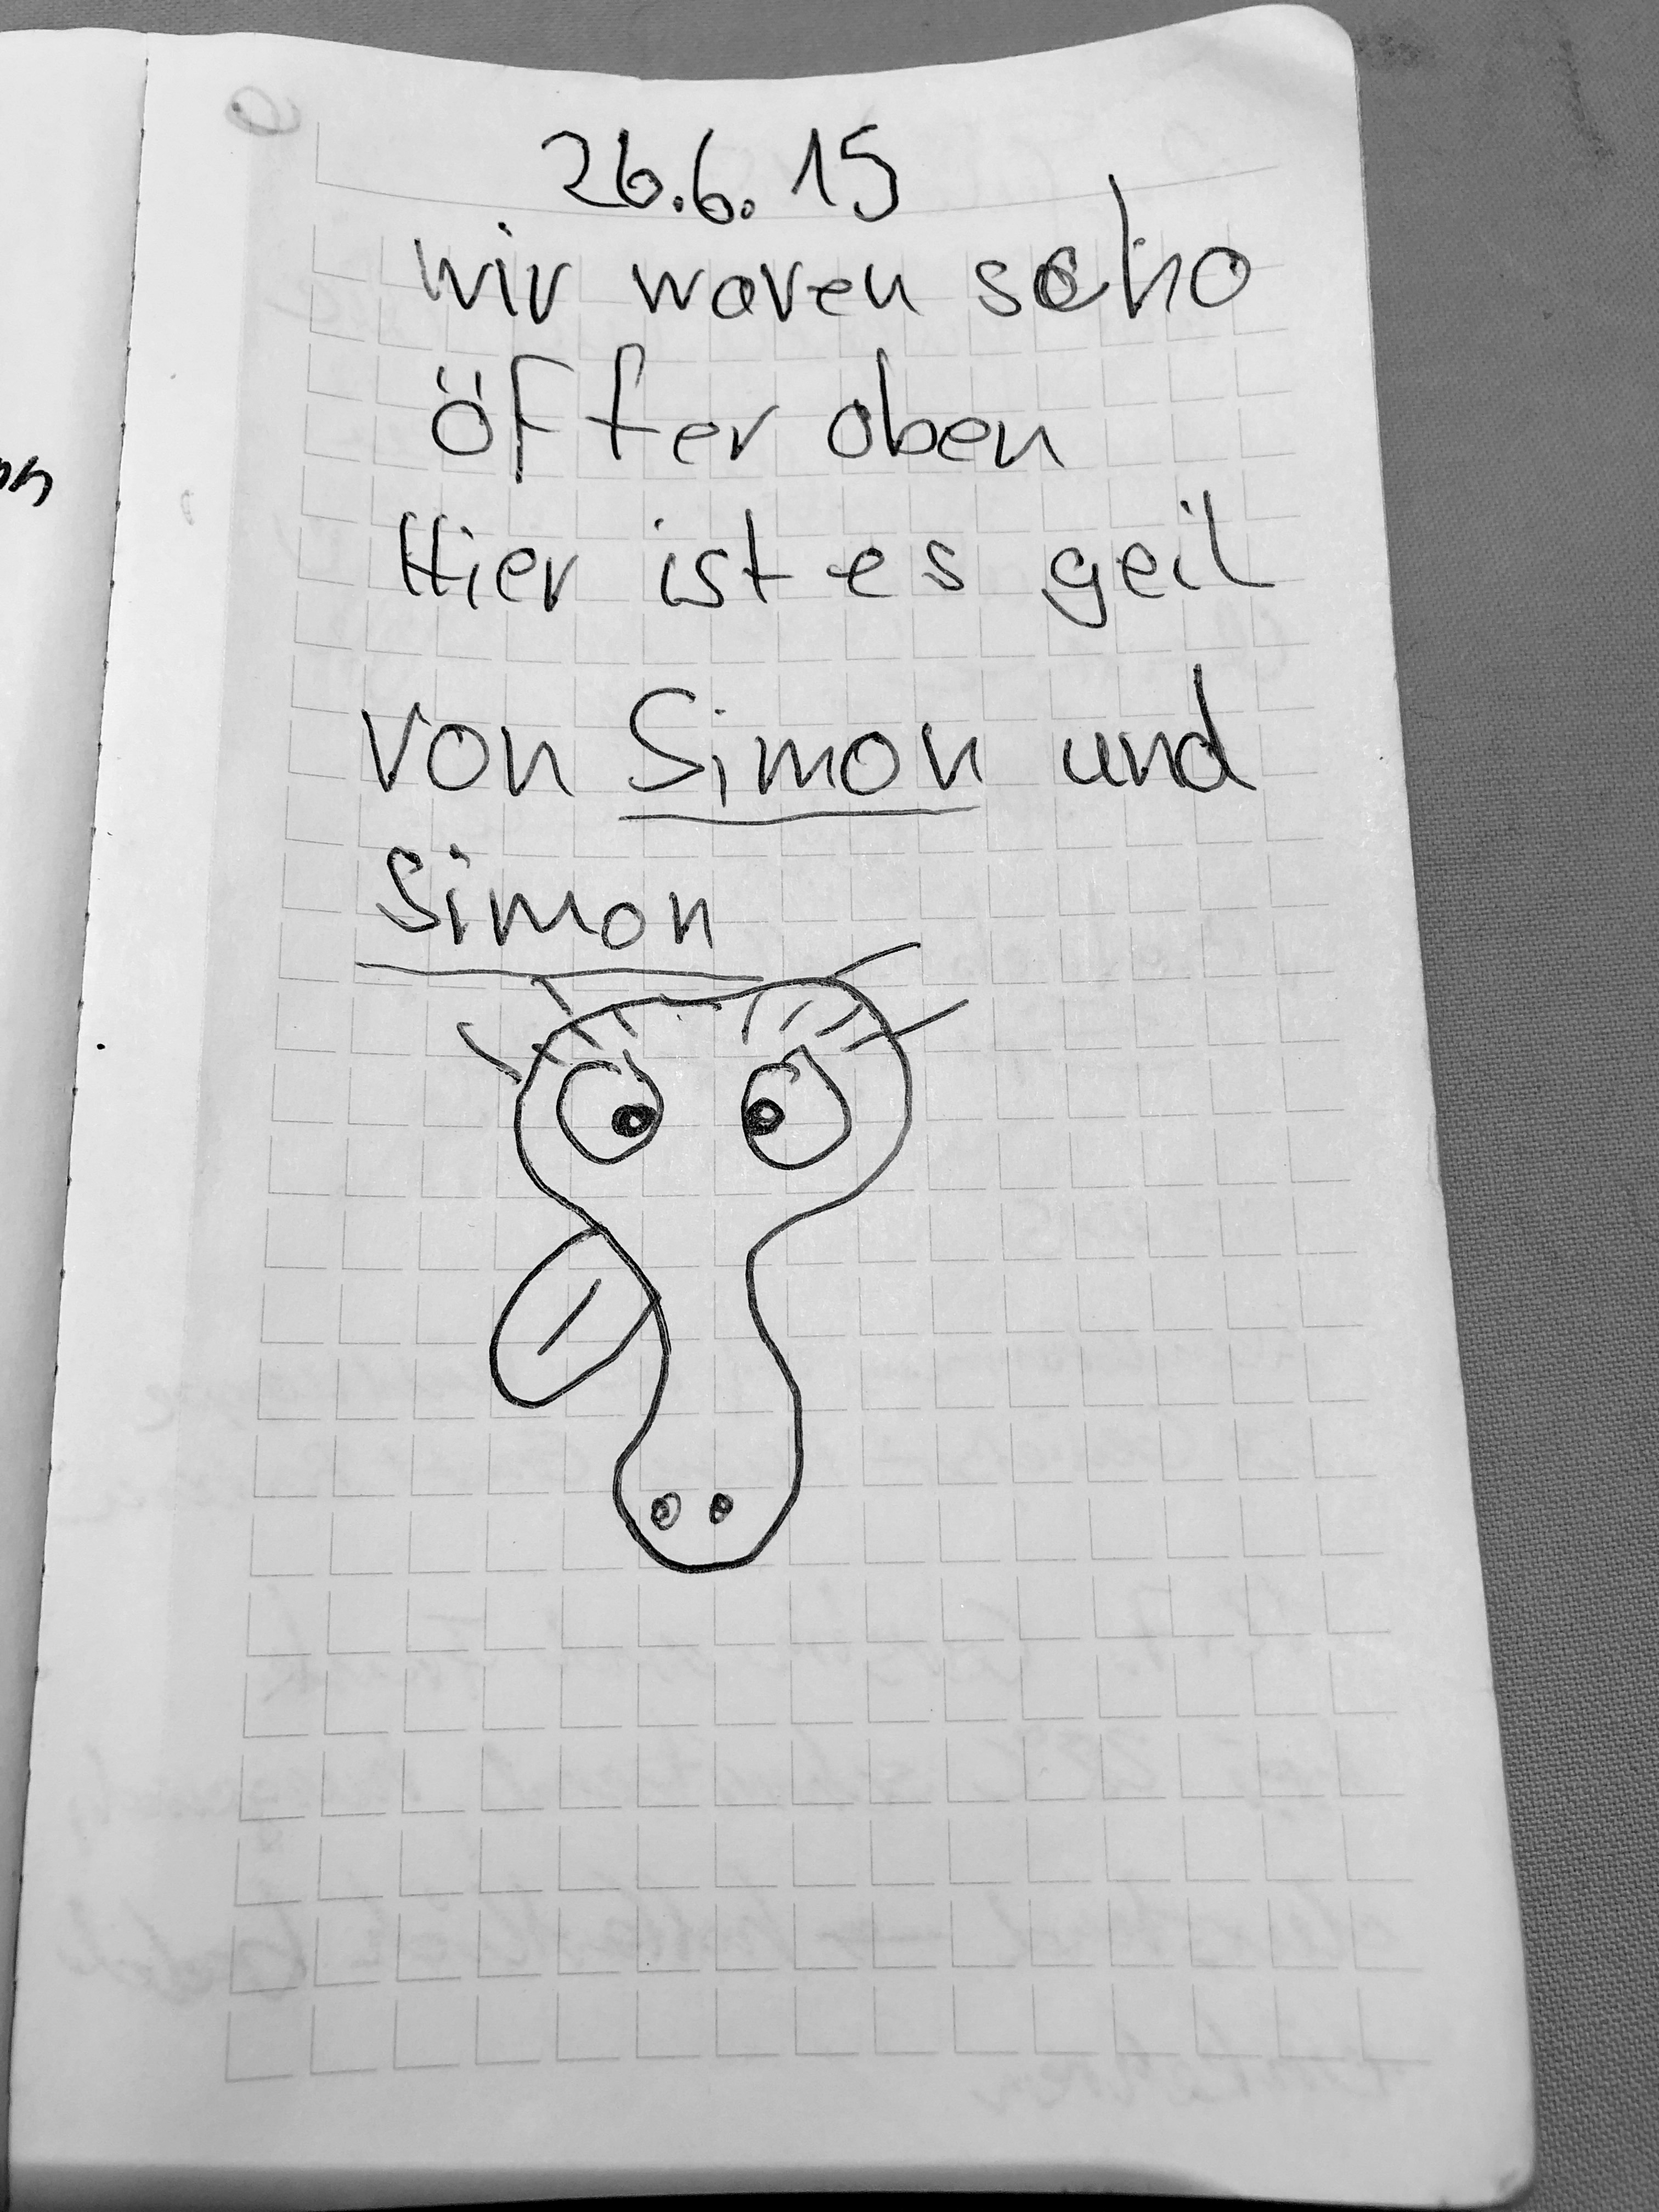 26.6.15
wir waren scho
öfter oben
Hier ist es geil
von Simon und
Simon